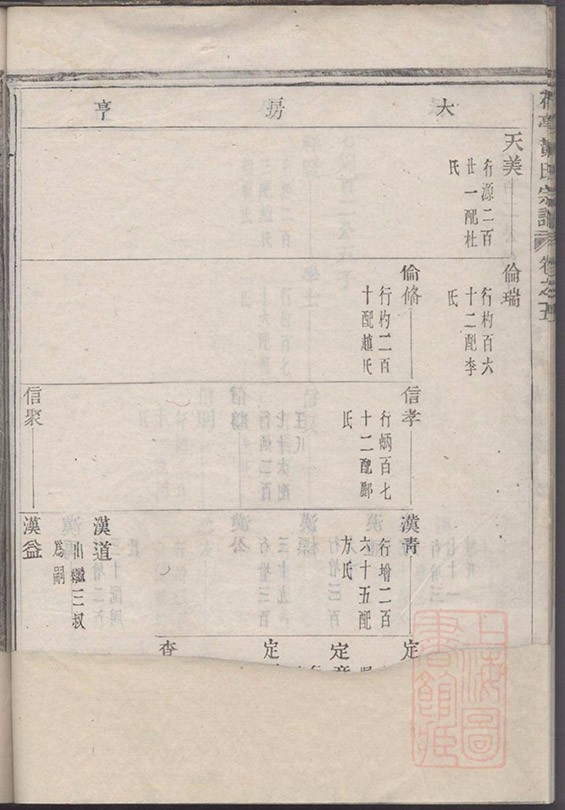 大房亨
天美
行源二百
廿一配杜
氏
倫瑞
行杓百六
十二配李
氏
倫脩
行杓二百
十配趙氏
信孝
行炳百七
十二配鄭
氏
信聚
漢青
行增二百
六十五配
方氏
漢道
出繼三叔
爲嗣
漢益
定
定
氏宗譜
卷之五
上海圖
書館藏